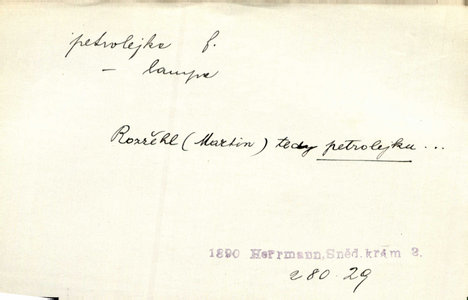 petrolejka f.
– lampa
Rozžehl (Martin) tedy petrolejku...
1890 Herrmann, Sněd. krám 2.
280.29